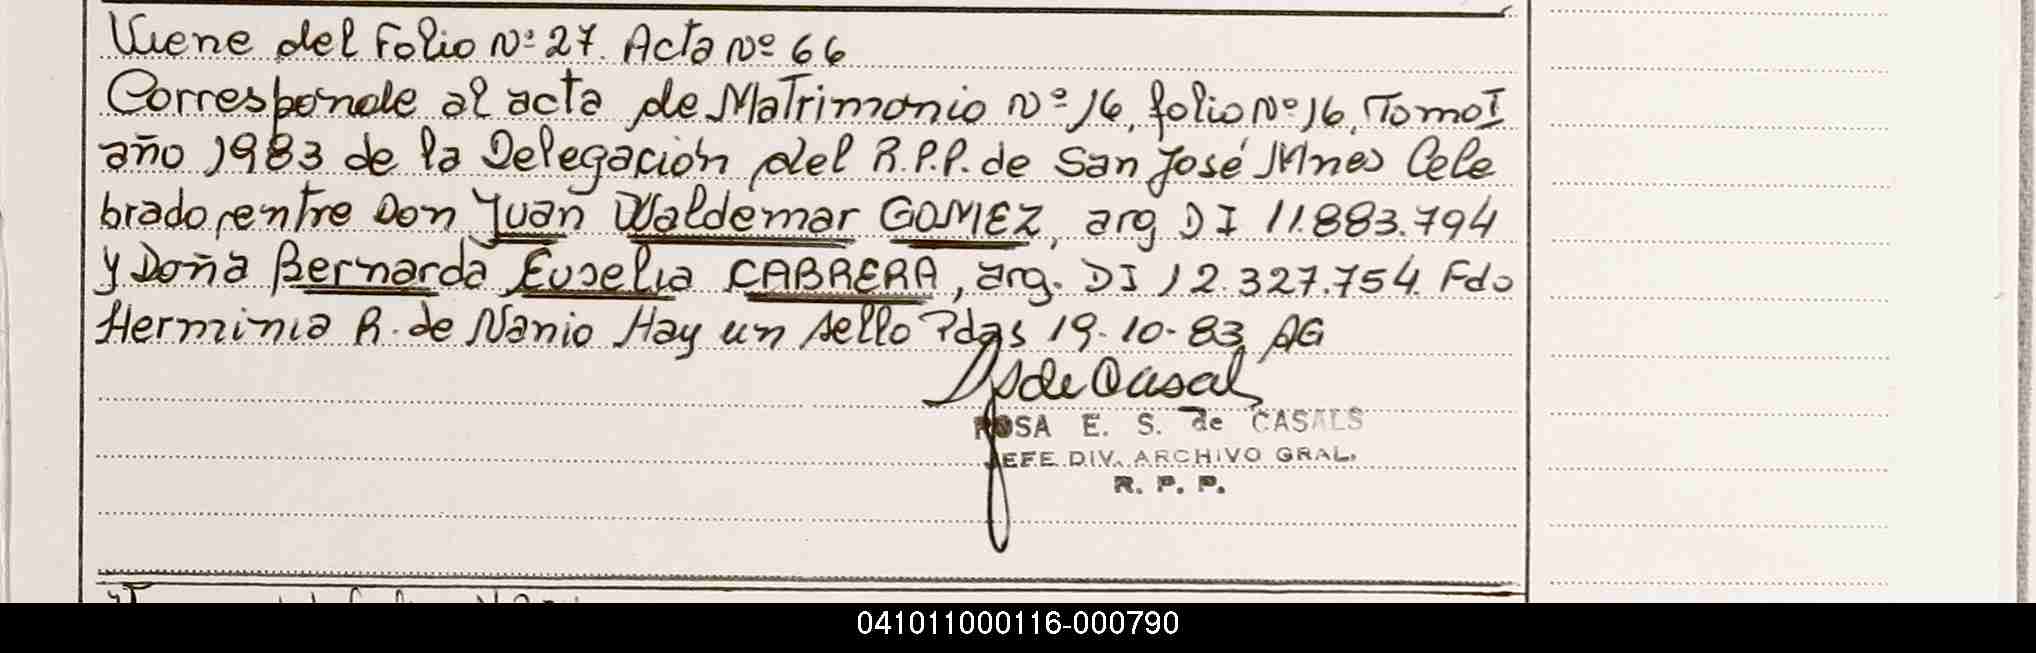 Viene del Folio Nº 27. Acta Nº 66
Corresponde al acta de Matrimonio Nº 16, folio Nº 16, Tomo I
año 1983 de la Delegación del R.P.P. de San José Mnes Cele
brado, entre Don Juan Waldemar GOMEZ, arg DI 11.883.794
y Doña Bernarda Euselia CABRERA, arg. DI 12.327.754. Fdo
Herminia R. de Nanio Hay un sello Pdas 19-10-83 AG
ROSA E. S. de CASALS
JEFE DIV. ARCHIVO GRAL.
R. P. P.
041011000116-000790